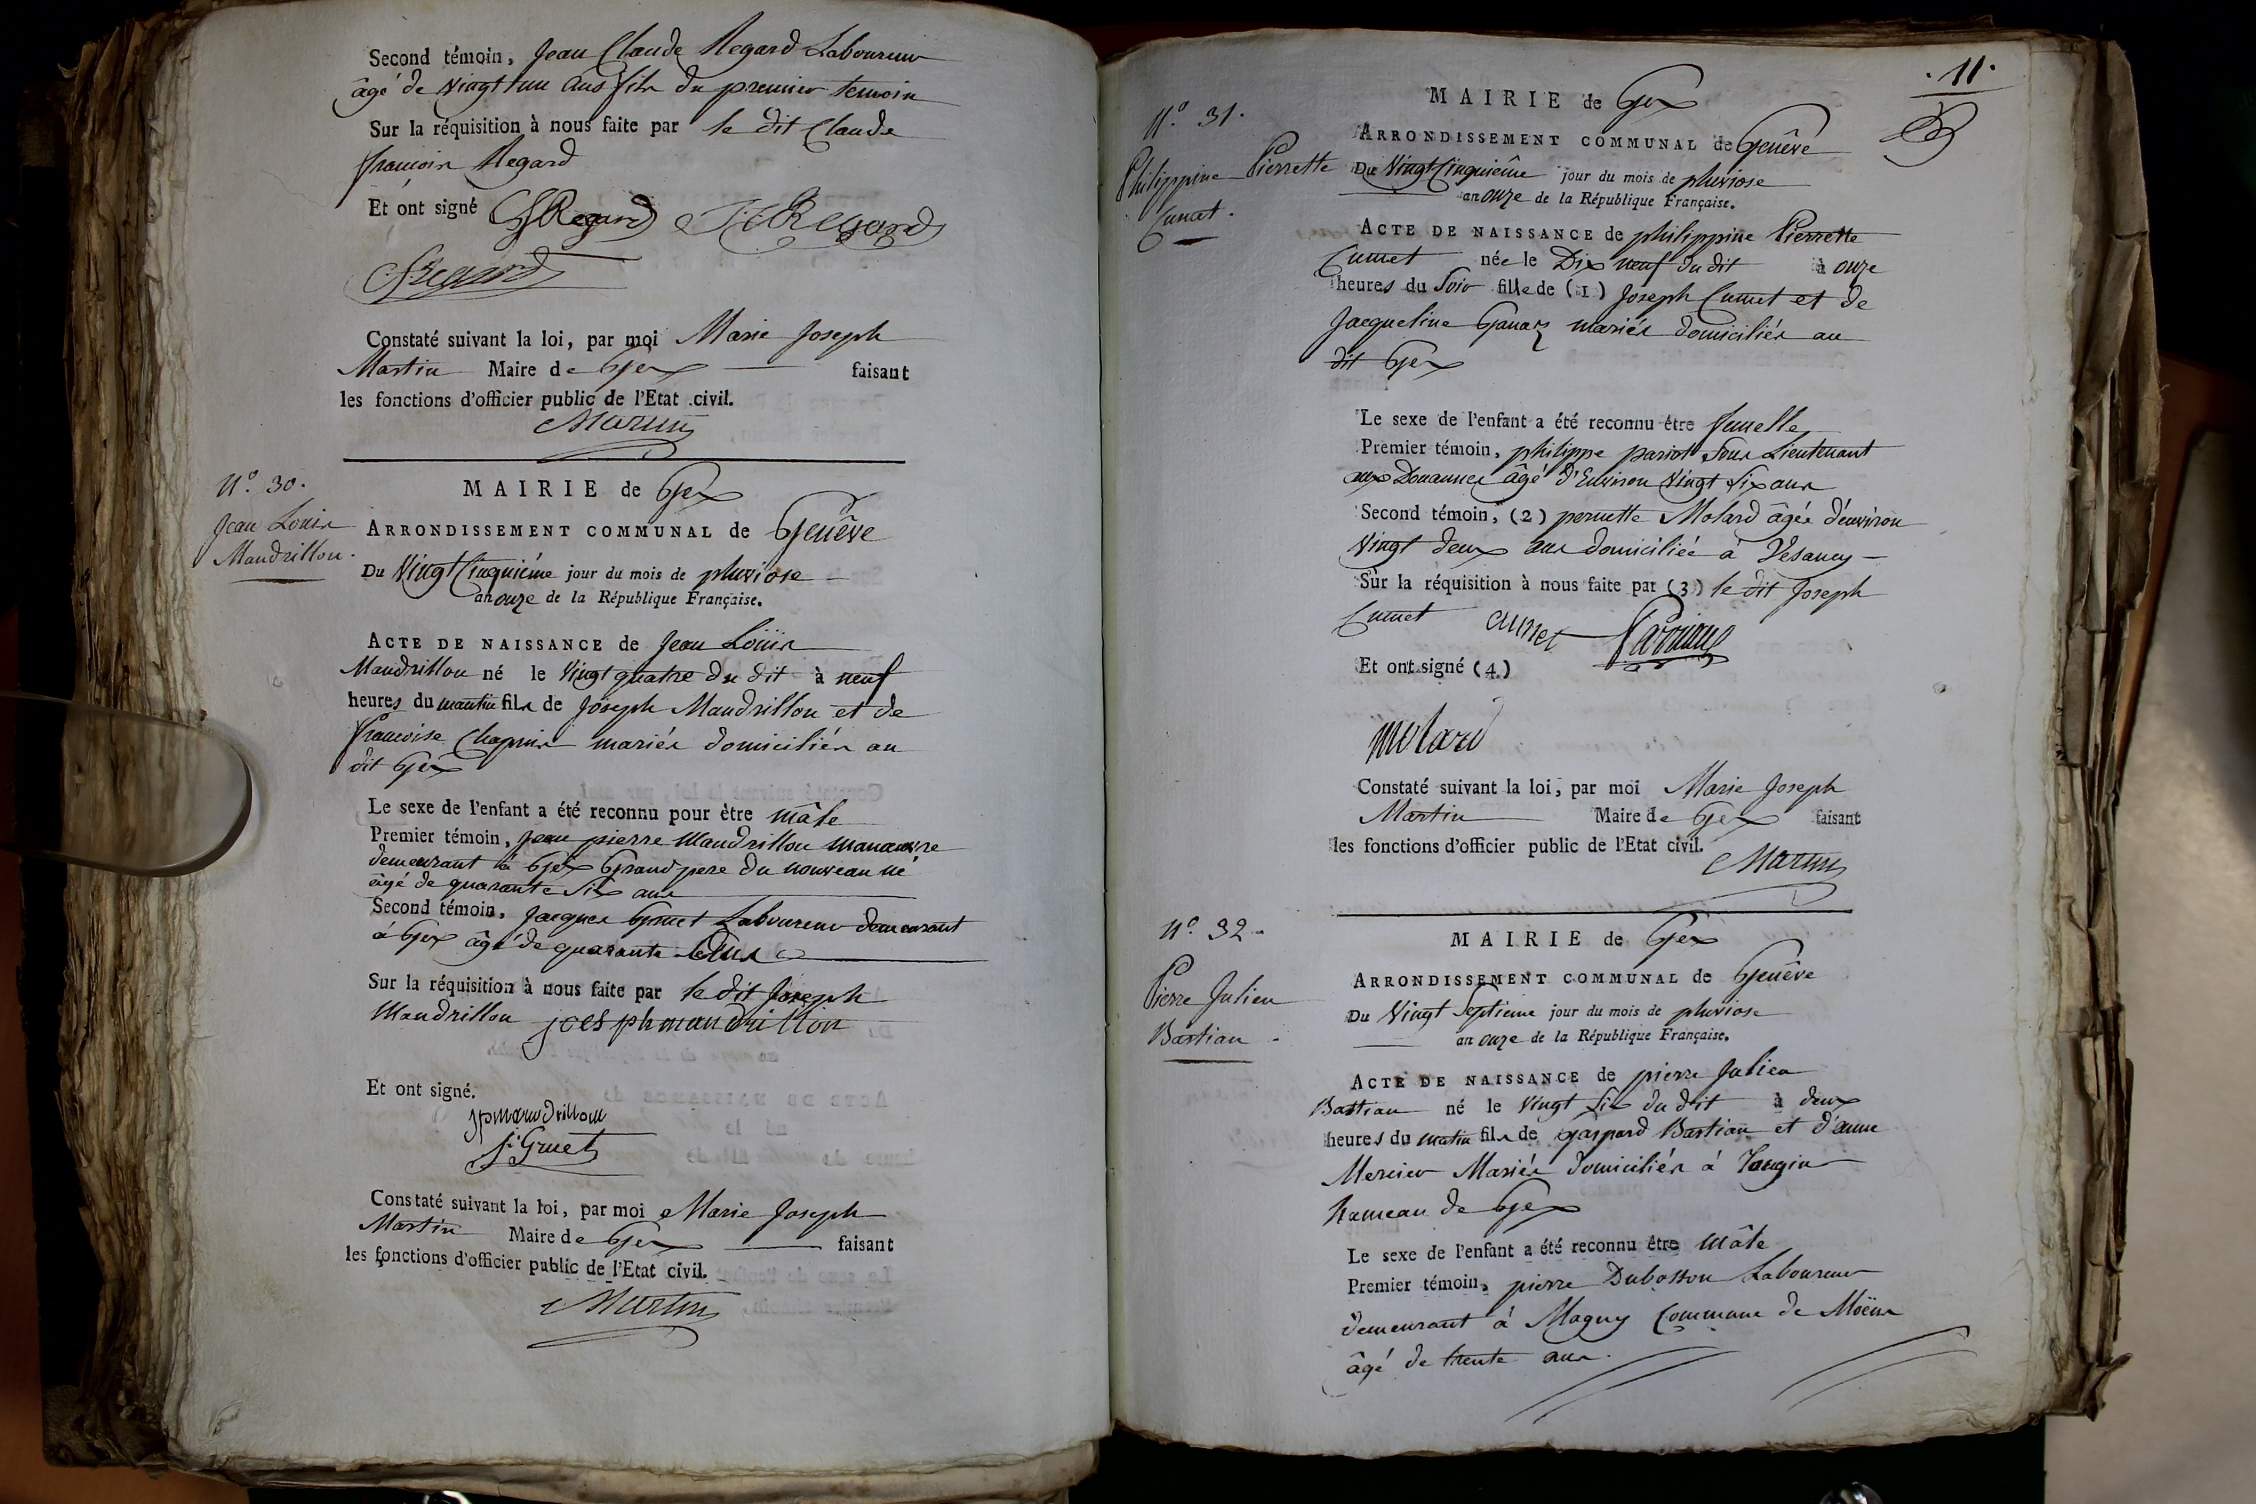 Second témoin, Jean Claude Regard Laboureur
âgé de vingt un ans fils du premier temoin
Sur la réquisition à nous faite par le dit Claude
francois Regard
Et ont signé CfRegard JCRegard
Regard
Constaté suivant la loi, par moi Marie Joseph
Martin Maire de Gex faisant
les fonctions d'officier public de l'Etat civil.
Martin
N.º 30.
Jean Louis
Mandrillon.
MAIRIE de Gex
ARRONDISSEMENT COMMUNAL de Genêve
Du Vingt Cinquiéme jour du mois de pluviose
an onze de la République Française.
ACTE DE NAISSANCE de Jean Louis
Mandrillon né le Vingt quatre du dit à neuf
heures du mantin fils de Joseph Mandrillon et de
francoise Chapuis mariés domiciliés au
dit Gex
Le sexe de l'enfant a été reconnu pour être mâle
Premier témoin, Jean pierre Mandrillon manœuvre
demeurant à Gex Grand pere du nouveau né
âgé de quarante six ans
Second témoin, Jacques Gruet Laboureur demeurant
à Gex âgé de quarante
Sur la réquisition à nous faite par le dit Joseph
Mandrillon joesphmandrillon
Et ont signé.
jpmandrillon
j. Gruet
Constaté suivant la loi, par moi Marie Joseph
Martin Maire de Gex faisant
les fonctions d'officier public de l'Etat civil.
Martin
.11.
N.º 31.
Philippine Pierrette
Cunet.
MAIRIE de Gex
ARRONDISSEMENT COMMUNAL de Genêve
Du Vingt Cinquiême jour du mois de pluviose
an onze de la République Française.
ACTE DE NAISSANCE de philippine Pierrette
Cunet née le Dix neuf du dit à onze
heures du Soir fille de (1) Joseph Cunet et de
Jacqueline mariés domiciliés au
dit Gex
Le sexe de l'enfant a été reconnu être femelle
Premier témoin, philippe pariot Sous Lieutenant
aux Douannes âgé d'Environ Vingt Six ans
Second témoin, (2) pernette Molard âgée d'environ
Vingt deux ans domiciliée à Vesancy
Sur la réquisition à nous faite par (3) le dit Joseph
Cunet cunet
Et ont signé (4)
molard
Constaté suivant la loi, par moi Marie Joseph
Martin Maire de Gex faisant
les fonctions d'officier public de l'Etat civil.
Martin
N.º 32.
Pierre Julien
Bastian.
MAIRIE de Gex
ARRONDISSEMENT COMMUNAL de Genêve
Du Vingt Septieme jour du mois de pluviose
an onze de la République Française.
ACTE DE NAISSANCE de pierre Julien
Bastian né le Vingt Six du dit à deux
heures du matin fils de gaspard Bastian et d'anne
Mercier Mariés domiciliés à Tougin
hameau de Gex
Le sexe de l'enfant a été reconnu être mâle
Premier témoin, pierre Dubosson Laboureur
demeurant à Magny Commune de Moëns
âgé de trente ans.